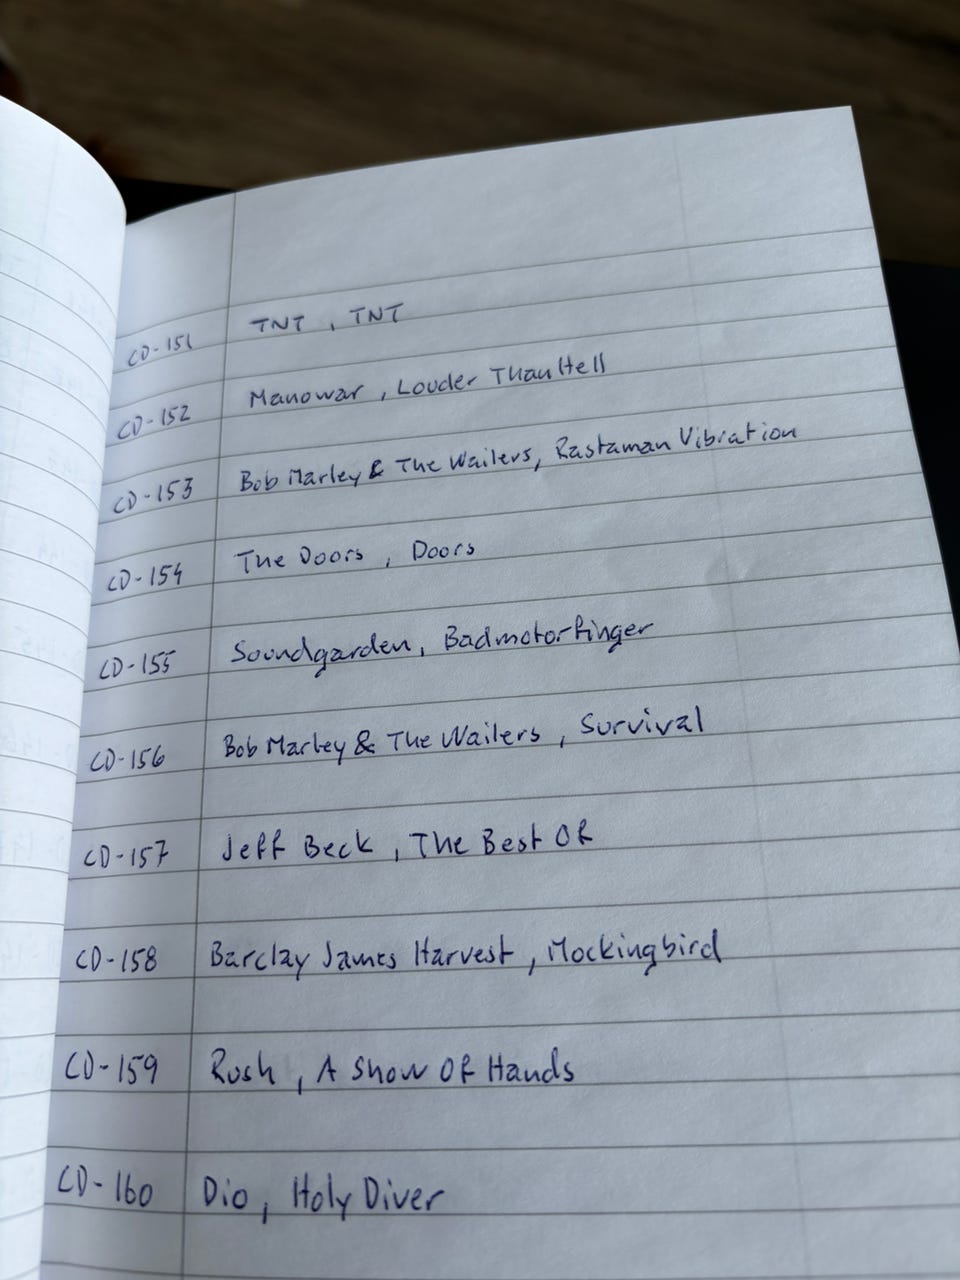 CD-151 TNT, TNT
CD-152 Manowar, Louder Than Hell
CD-153 Bob Marley & The Wailers, Rastaman Vibration
CD-154 The Doors, Doors
CD-155 Soundgarden, Badmotorfinger
CD-156 Bob Marley & The Wailers, Survival
CD-157 Jeff Beck, The Best Of
CD-158 Barclay James Harvest, Mockingbird
CD-159 Rush, A Show Of Hands
CD-160 Dio, Holy Diver